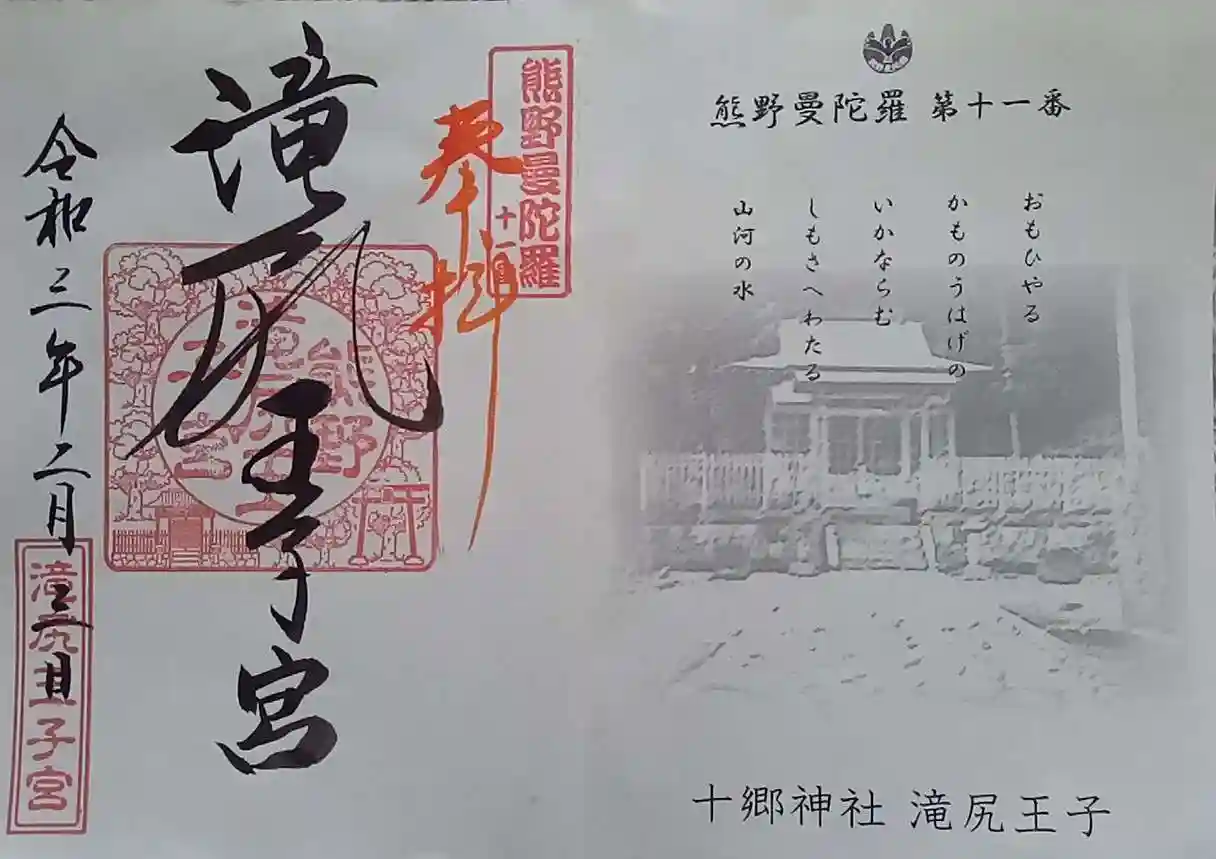 熊野曼陀羅 第十一番
おもひやる
かものうはげの
いかならむ
しもさへわたる
山河の水
十郷神社 滝尻王子
熊野曼陀羅
十一番
奉拝
滝尻王子宮
熊野
滝尻王子宮
令和三年二月二日
滝尻王子宮